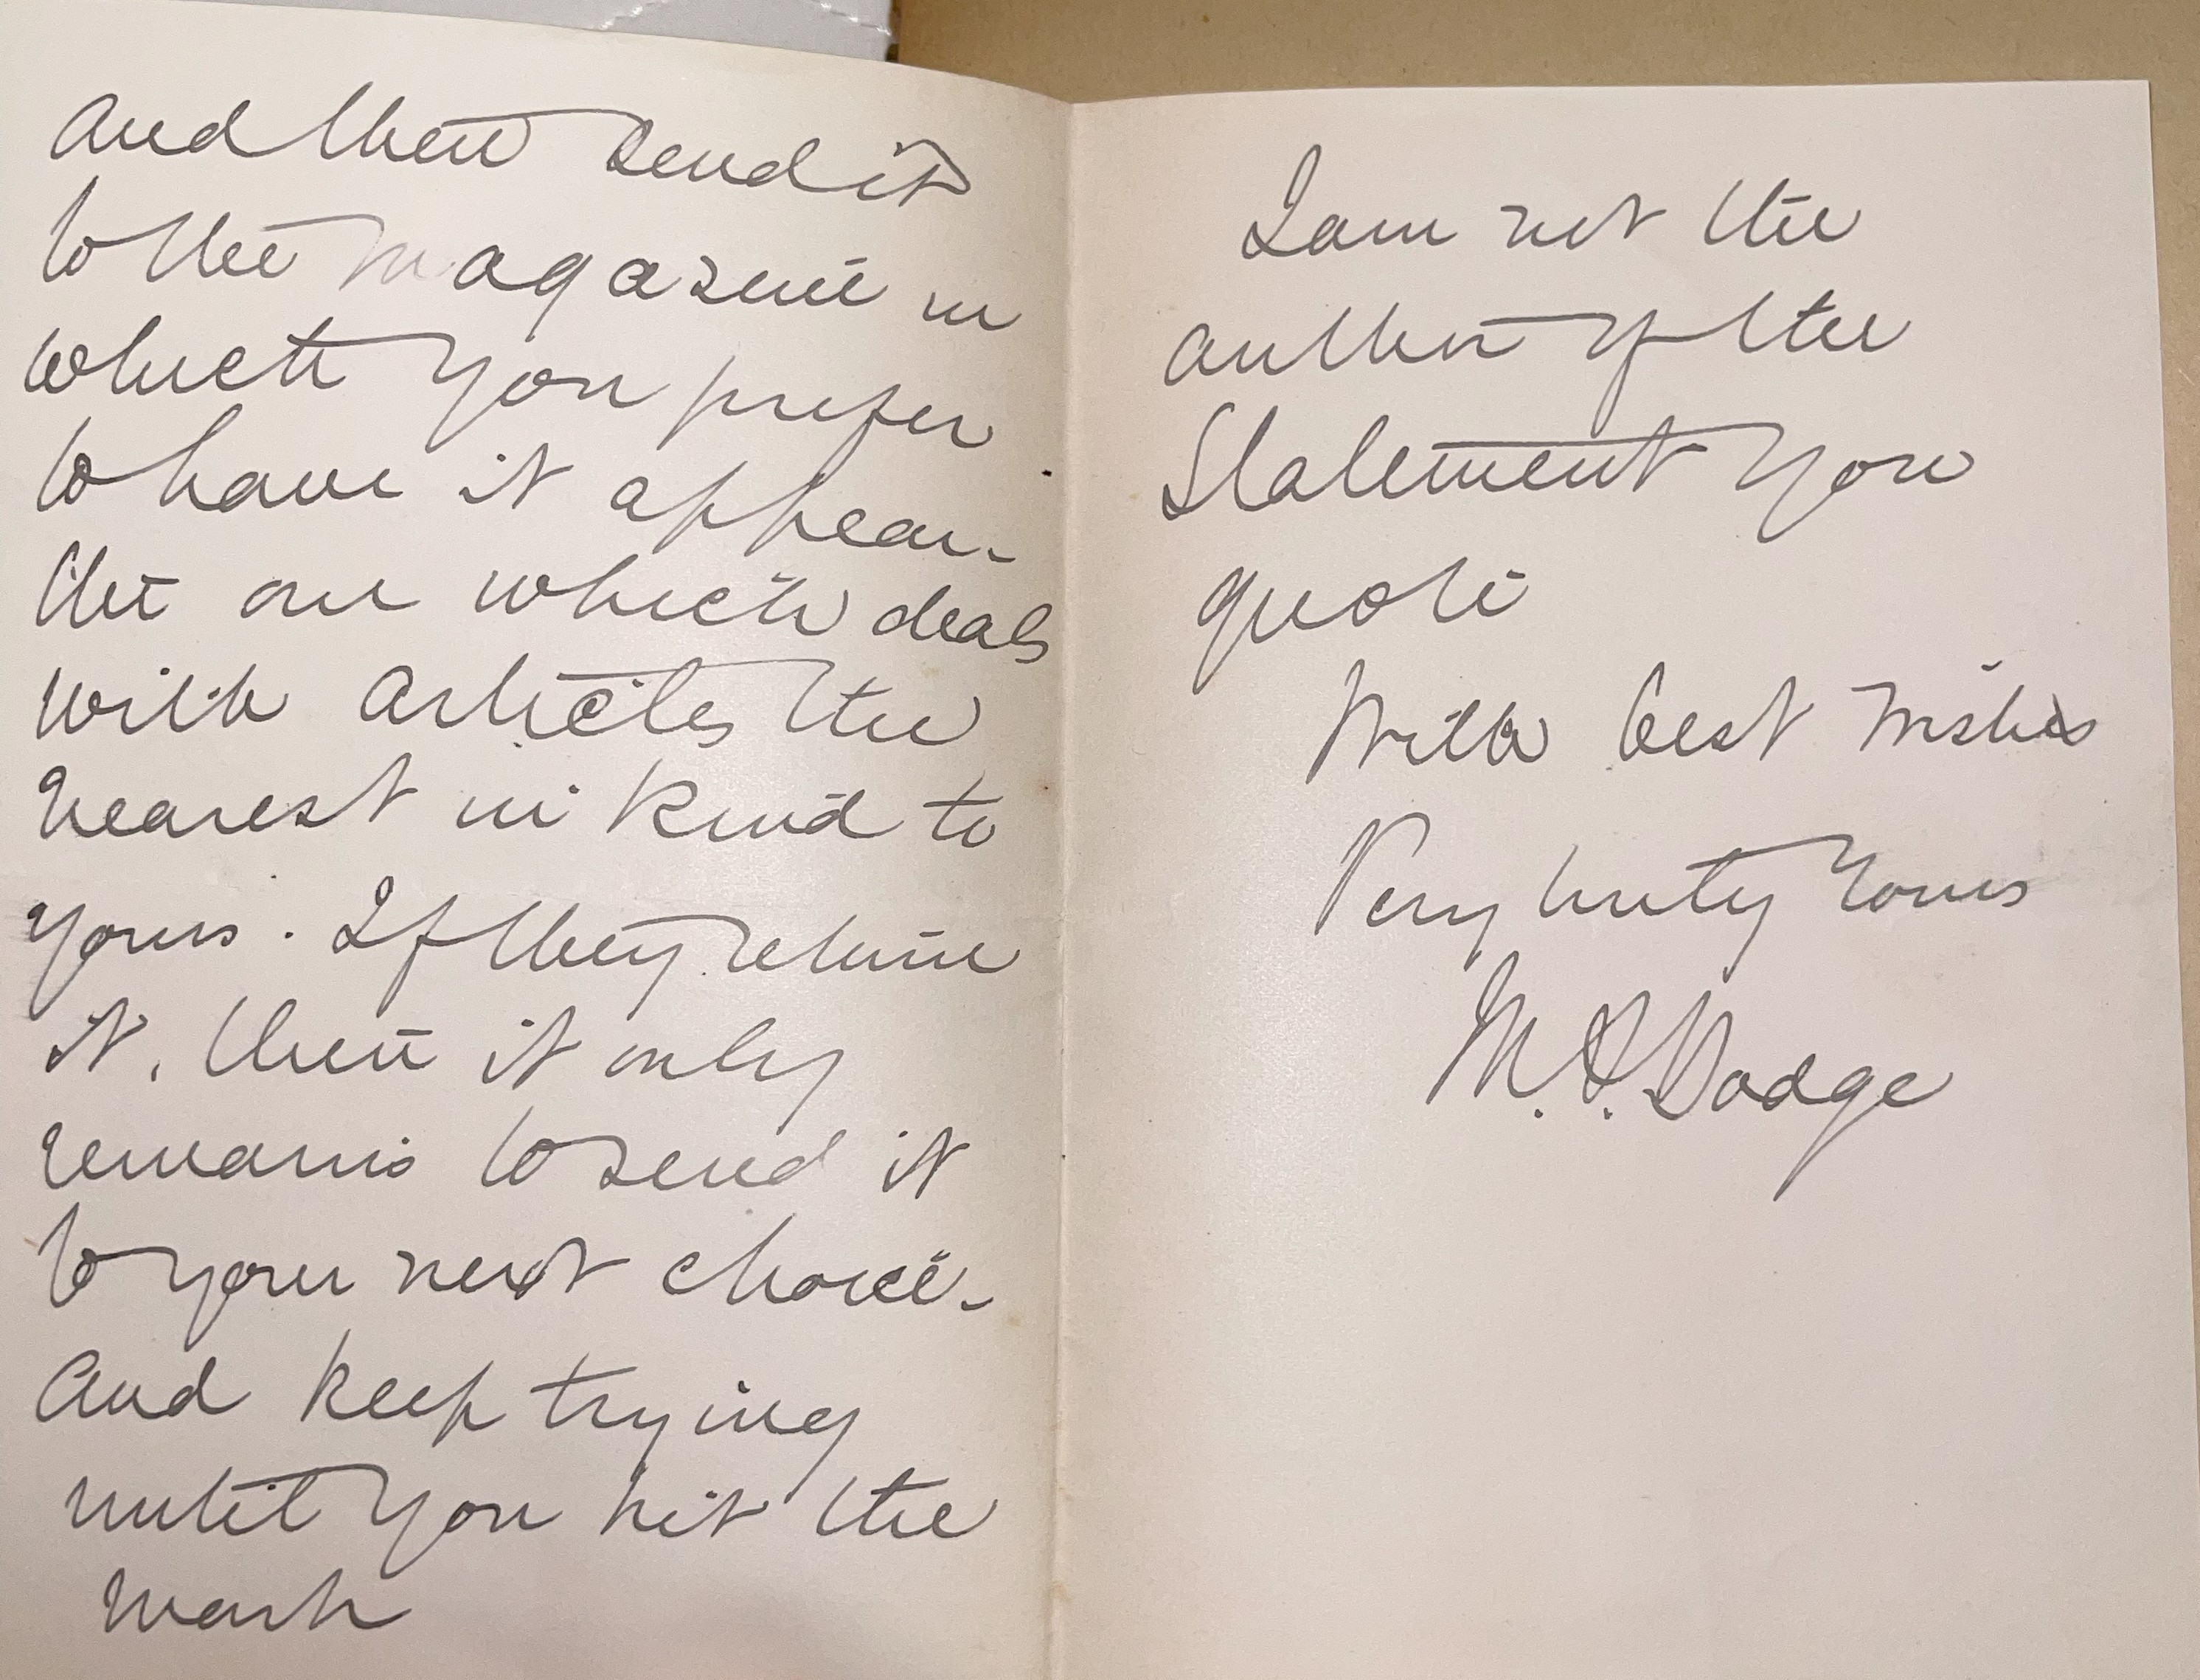 and then send it
to the magazine in
which you prefer
to have it appear -
the one which deals
with articles the
nearest in kind to
yours. If they return
it, then it only
remains to send it
to your next choice -
and keep trying
until you hit the
mark
I am not the
author of the
statement you
quote
With best wishes
Very truly yours
M. A. Dodge